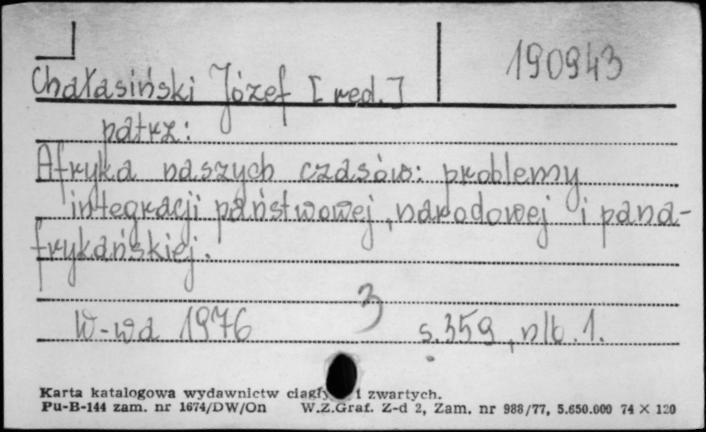 190943
Chałasiński Józef [red.]
patrz:
Afryka naszych czasów: problemy
integracji państwowej, narodowej i pana-
frykańskiej.
3
W-wa 1976 s. 359, nlb. 1.
Karta katalogowa wydawnictw ciągły i zwartych.
Pu-B-144 zam. nr 1674/DW/On W.Z.Graf. Z-d 2, Zam. nr 988/77, 5.650.000 74 × 120